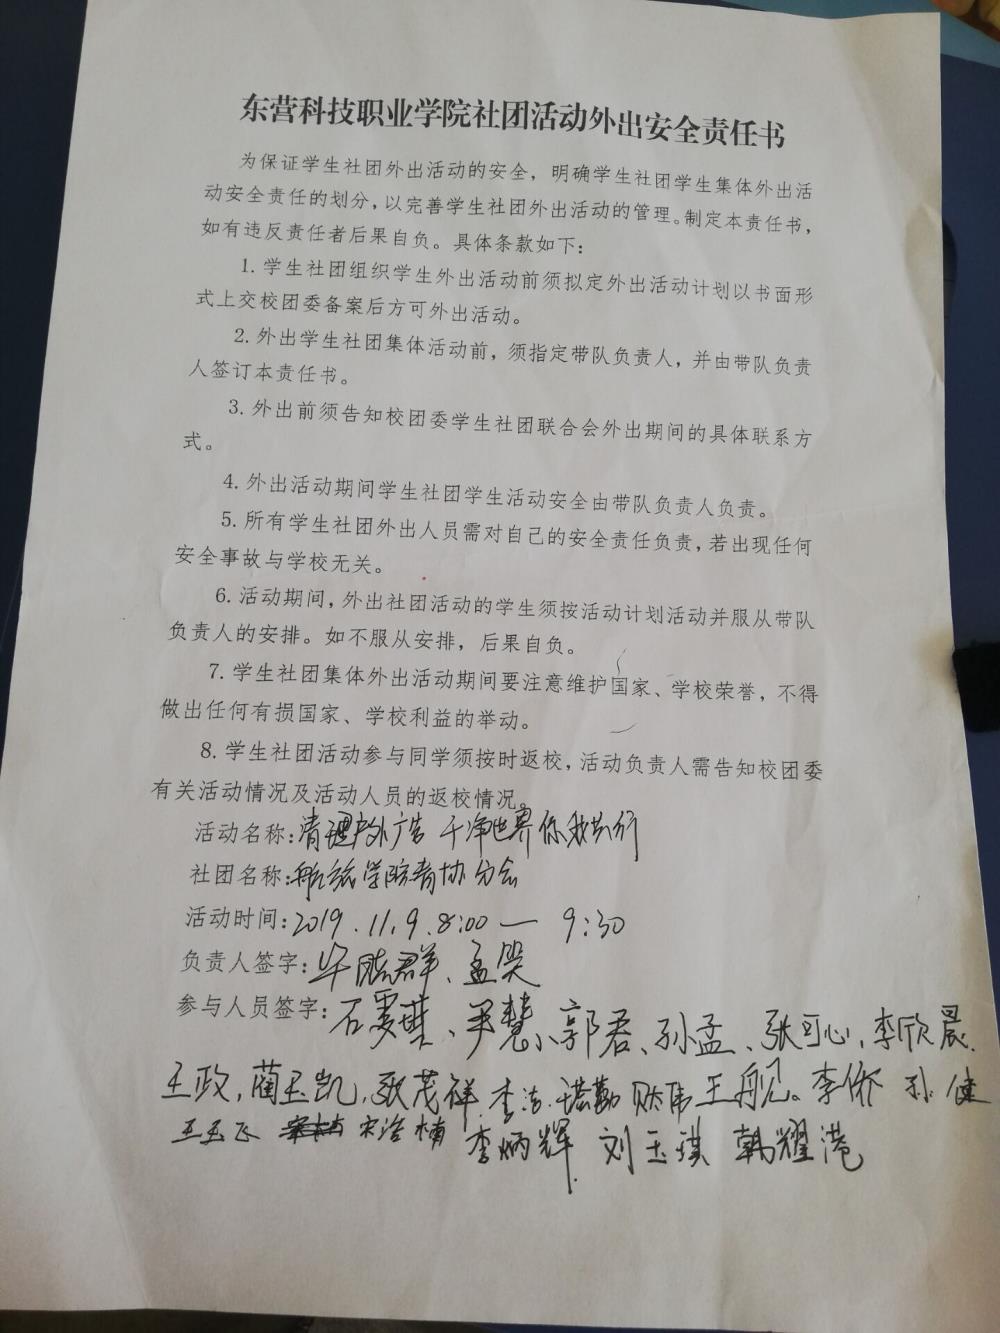 东营科技职业学院社团活动外出安全责任书
为保证学生社团外出活动的安全，明确学生社团学生集体外出活
动安全责任的划分，以完善学生社团外出活动的管理。制定本责任书，
如有违反责任者后果自负。具体条款如下：
1.学生社团组织学生外出活动前须拟定外出活动计划以书面形
式上交校团委备案后方可外出活动。
2.外出学生社团集体活动前，须指定带队负责人，并由带队负责
人签订本责任书。
3.外出前须告知校团委学生社团联合会外出期间的具体联系方
式。
4.外出活动期间学生社团学生活动安全由带队负责人负责。
5.所有学生社团外出人员需对自己的安全责任负责，若出现任何
安全事故与学校无关。
6.活动期间，外出社团活动的学生须按活动计划活动并服从带队
负责人的安排。如不服从安排，后果自负。
7.学生社团集体外出活动期间要注意维护国家、学校荣誉，不得
做出任何有损国家、学校利益的举动。
8.学生社团活动参与同学须按时返校，活动负责人需告知校团委
有关活动情况及活动人员的返校情况。
活动名称：清理户外广告 干净世界你我共行
社团名称：航旅学院青协分会
活动时间：2019.11.9.8:00—9:30
负责人签字：
参与人员签字： 尹慧、郭君、孙孟、张可心、李欣晨、
王政，蔺玉凯，耿茂祥 李洁 王舰。李侨 孙健
王玉飞 宋浩楠 李炳辉 刘玉琪 韩耀港